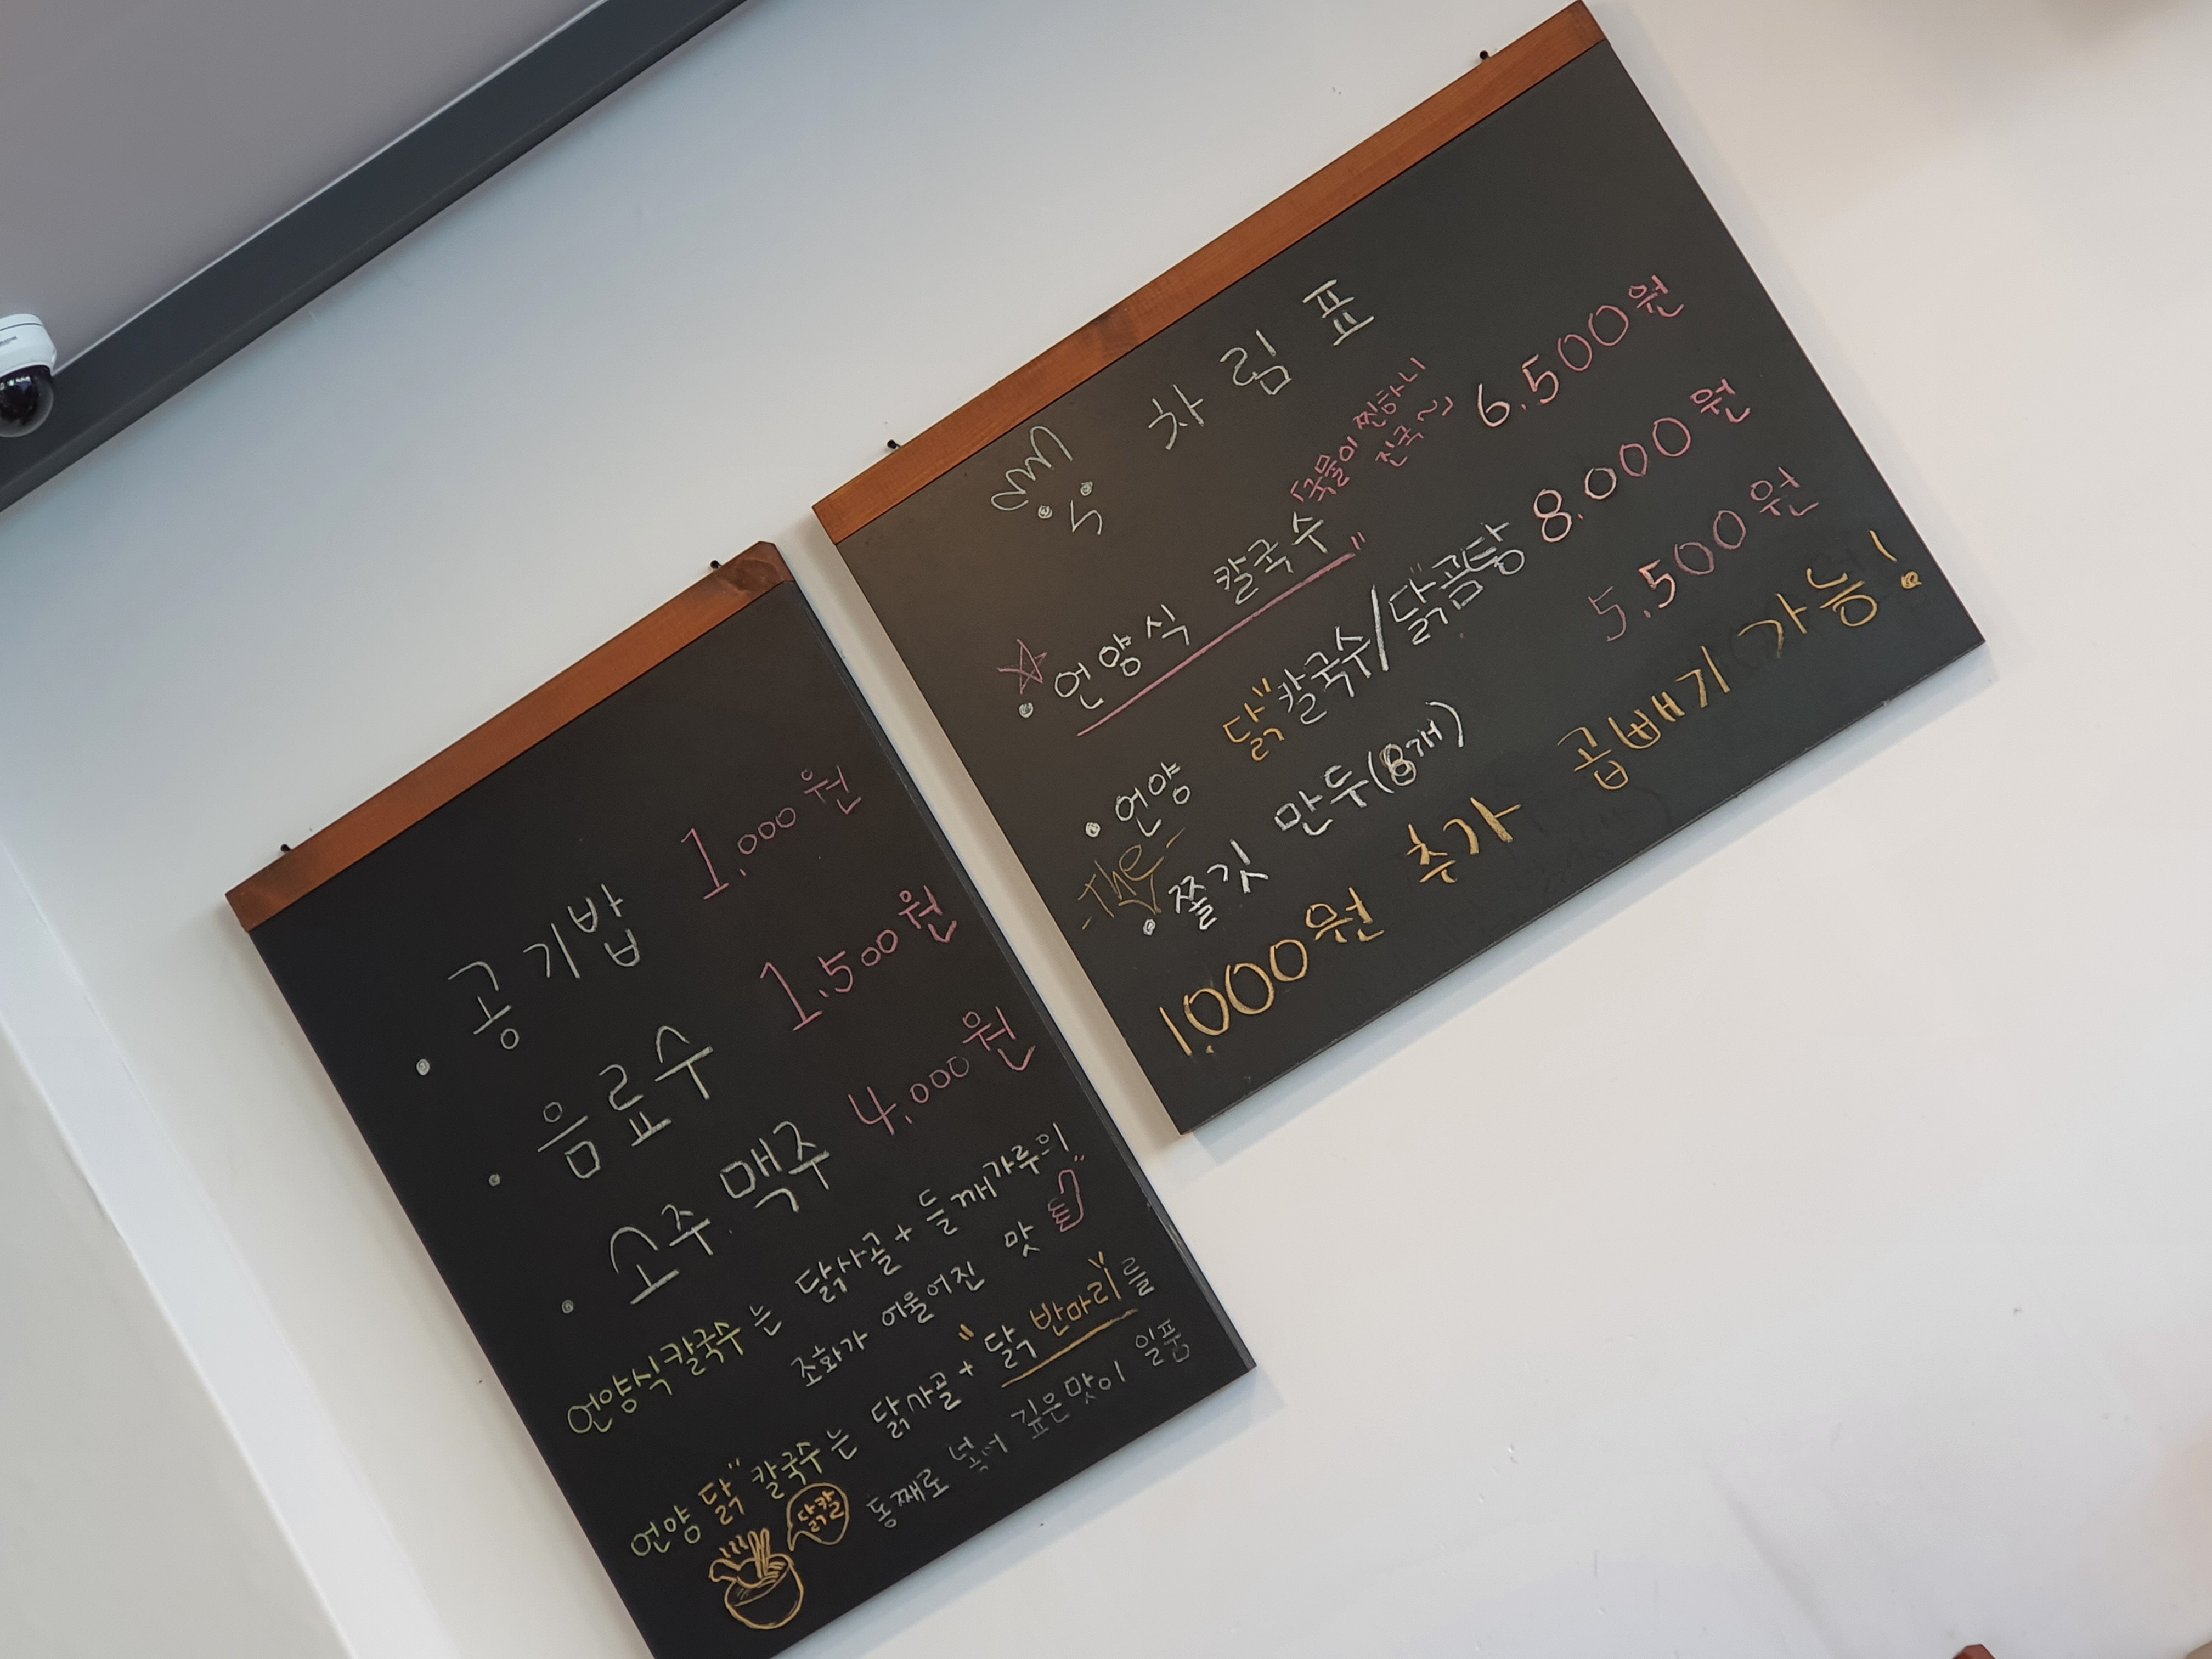 차림표
언양식 칼국수 "국물이 찐하니 진국~" 6.500원
언양 닭칼국수/닭곰탕 8.000원
-The-
쫄깃 만두(8개) 5.500원
1.000원 추가 곱빼기 가능!
공기밥 1.000원
음료수 1.500원
소주.맥주 4.000원
언양식칼국수는 닭사골+들깨가루의
조화가 어울어진 맛
언양 닭"칼국수는 닭사골+"닭 반마리"를
통째로 넣어 깊은맛이 일품
닭칼